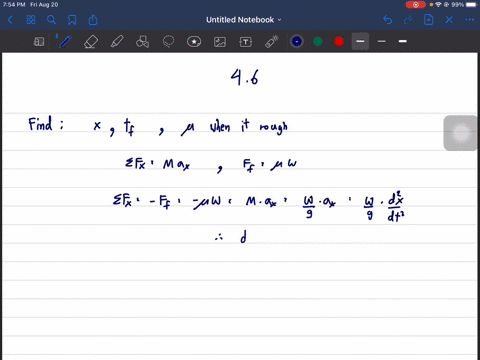 7:54 PM Fri Aug 20
99%
Untitled Notebook
4.6
Find : x , t_f , μ when it rough
ΣFx = M ax , F_f = μ W
ΣFx = - F_f = -μW = M · ax = W/g · ax = W/g · d²x/dt²
∴ d